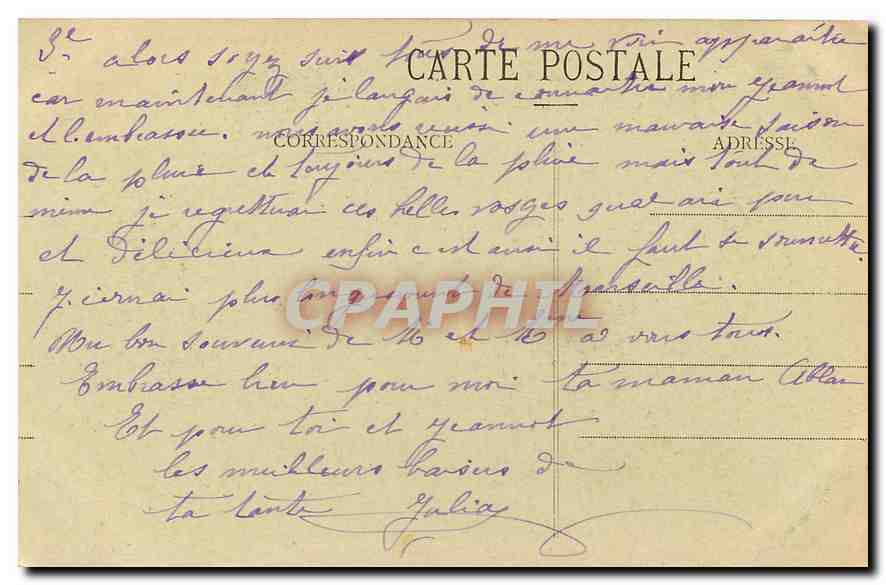 3e alors soyez surs tous de me voir apparaitre
CARTE POSTALE
car maintenant je languis de connaitre mon Jeannot
et l'embrasser. nous avons une mauvaise saison
CORRESPONDANCE ADRESSE
de la pluie et toujours de la pluie mais tout de
même je regretterai ces belles vosges air pur
et délicieux enfin c'est ainsi il faut se soumettre.
J'ecrirai plus longuement de Marseille.
CPAPHIL
.com
Mu bon souvenir de M et M à vous tous.
Embrasse bien pour moi ta maman
Et pour toi et Jeannot
les meilleurs baisers de
ta tante Julia